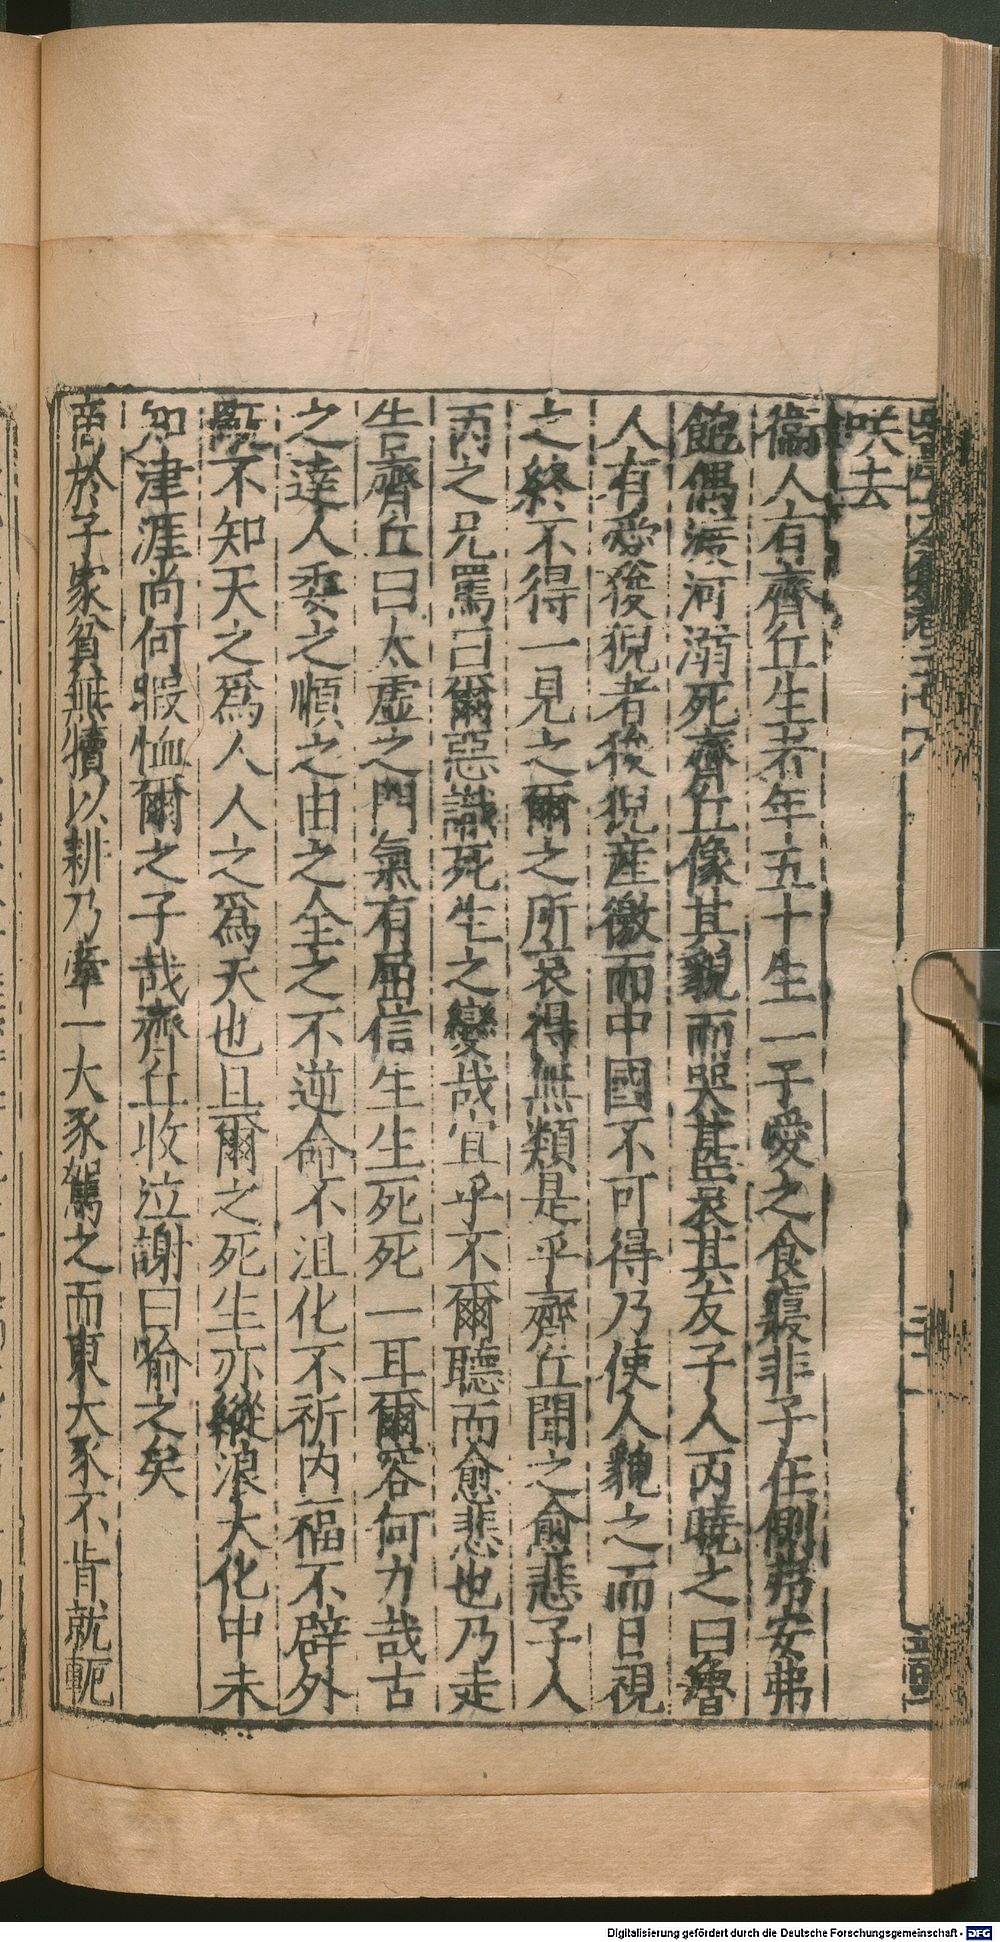 咲去
衞人有齊丘生者年五十生一子愛之食寢非子在側弗安弗
飽偶渡河溺死齊丘像其貌而哭甚哀其友子人丙曉之曰魯
人有愛後猊者後猊産徼而中國不可得乃使人貌之而日視
之終不得一見之爾之所哀得無類是乎齊丘聞之愈悲子人
丙之兄罵曰爾惡識死生之變哉宜乎不爾聽而愈悲也乃走
告齊丘曰太虛之門氣有屈信生生死死一耳爾容何力哉古
之達人委之順之由之全之不逆命不沮化不祈内福不辟外
不知天之爲人人之爲天也且爾之死生亦縱浪大化中未
知津涯尚何暇恤爾之子哉齊丘收泣謝曰喻之矣
商於子家貧無犢以耕乃牽一大豕駕之而東大豕不肯就軛
Digitalisierung gefördert durch die Deutsche Forschungsgemeinschaft - DFG